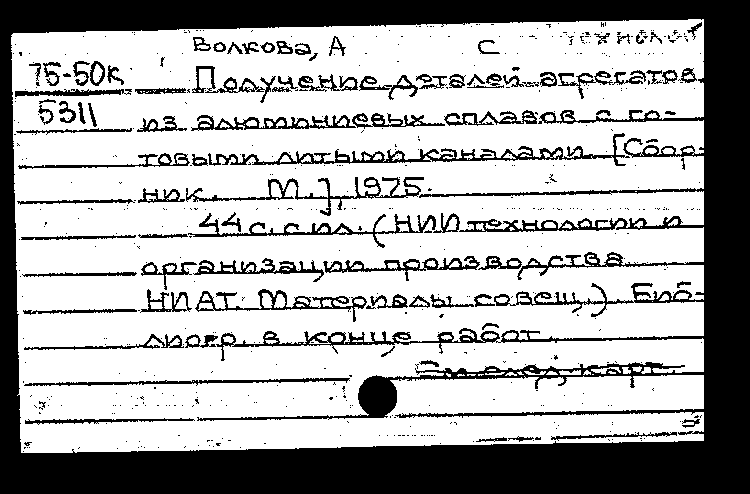 Волкова, А С технолог
75-50к Получение деталей агрегатов
5311 из алюминиевых сплавов с го-
товыми литыми каналами. [Сбор-
ник. М.], 1975.
44 с. с ил. (НИИ технологии и
организации производства
НИАТ. Материалы совещ.) Биб-
лиогр. в конце работ.
См след. карт.